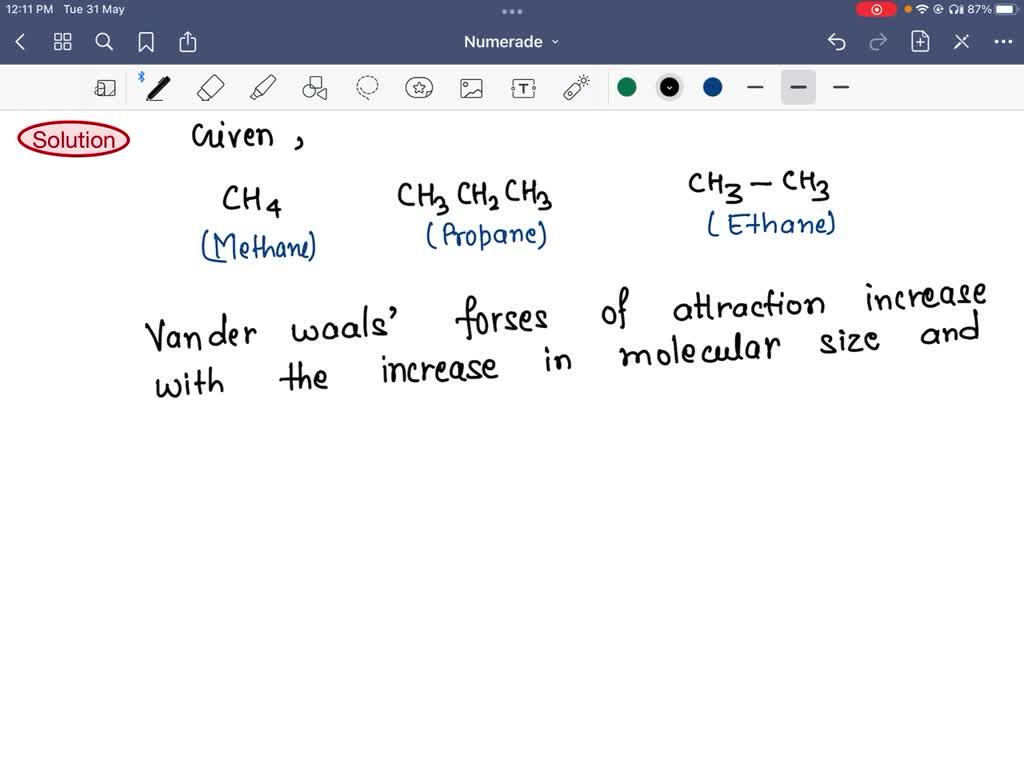 12:11 PM Tue 31 May 87%
Numerade
Solution
Given ,
CH4 CH3 CH2 CH3 CH3 - CH3
(Methane) (Propane) (Ethane)
Vander waals' forses of attraction increase
with the increase in molecular size and